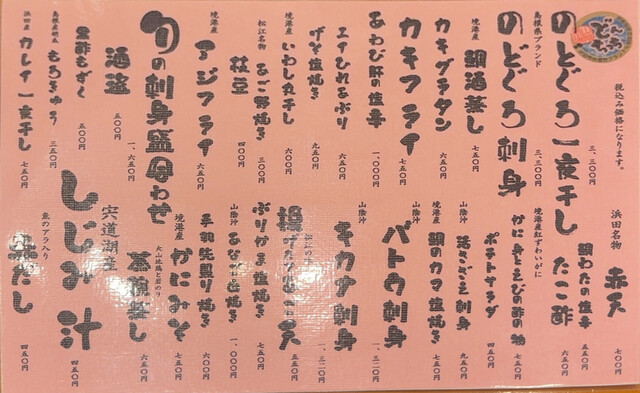 どんちっち
税込み価格になります。
島根県ブランド
のどぐろ一夜干し
三、三〇〇円
のどぐろ刺身
三、三〇〇円
境港産
鯛酒蒸し
七五〇円
カキグラタン
六五〇円
カキフライ
七五〇円
あわび肝の塩辛
一、〇〇〇円
エイひれあぶり
六五〇円
げそ塩焼き
九五〇円
境港産
いわし丸干し
六〇〇円
松江名物
あご野焼き
三〇〇円
枝豆
四〇〇円
境港産
アジフライ
六五〇円
旬の刺身盛合わせ
一、六五〇円
酒盗
五〇〇円
黒酢もずく
五〇〇円
島根産胡瓜
もろきゅう
三五〇円
浜田産
カレイ一夜干し
七五〇円
浜田名物
赤天
七〇〇円
鯛わたの塩辛
五五〇円
たこ酢
六五〇円
境港産紅ずわいがに
かに身とえびの酢の物
七五〇円
ポテトサラダ
四五〇円
山陰沖
活さざえ刺身
九五〇円
境港産
鯛のカマ塩焼き
七五〇円
山陰沖
バトウ刺身
一、三二〇円
山陰沖
キカナ刺身
一、三二〇円
天
五五〇円
ぶりかま塩焼き
七五〇円
山陰沖
あなご塩焼き
一、〇〇〇円
手羽先照り焼き
六〇〇円
境港産
かにみそ
七五〇円
大山地鶏と岩のり
茶碗蒸し
六五〇円
宍道湖産
しじみ汁
四五〇円
魚のアラ入り
だし
四五〇円